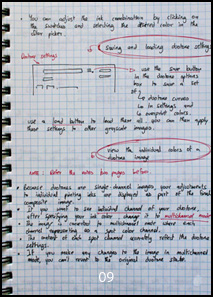 • You can adjust the ink combination by clicking on
the swatches and selecting the desired color in the
color picker.
Saving and loading duotone settings
Duotone settings
→ use the save button
in the duotone options
box to save a set
of:
↳ duotone curves
↳ ink settings and
↳ overprint colors.
use a load button to load them all. you can then apply
these settings to other greyscale images.
view the individual colors of a
duotone image
note: Refer the notes two pages before
• Because duotones are single-channel images, your adjustments
individual printing inks are displayed as part of the final
composite image.
• If you want to see individual channel of your duotone
after specifying your ink color change it to multichannel mode
• The image is converted to multichannel mode where each
channel represented as a spot color channel.
• The content of each spot channel accurately reflect the duotone
settings.
• If you make any changes to the image in multichannel
mode, you can't revert to the original duotone state.
09